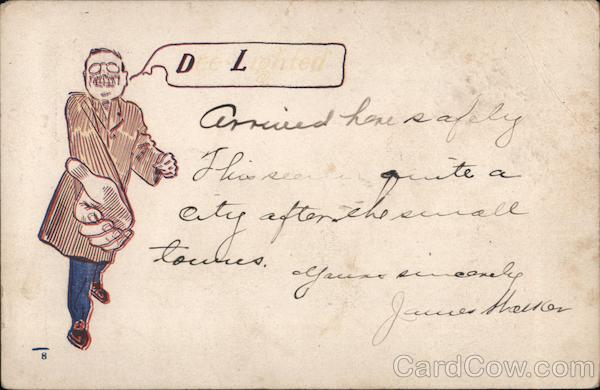 Dee-Lighted
Arrived here safely
This seems quite a
city after the small
towns.
Yours sincerely
James Walker
8
CardCow.com